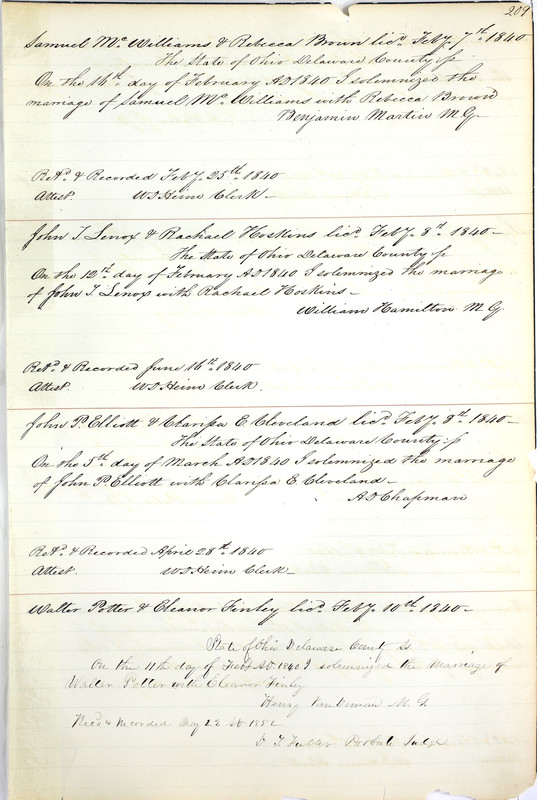 209
Samuel Mc Williams & Rebecca Brown licd. Feby. 7th 1840
The State of Ohio Delaware County ss
On the 16th day of February AD 1840 I solemnized the
marriage of Samuel Mc Williams with Rebecca Brown
Benjamin Martin M.G.
Retd. & Recorded Feby. 25th 1840
Attest. W D Heim Clerk
John T. Lenox & Rachael Hoskins licd. Feby. 8th 1840
The State of Ohio Delaware County ss
On the 12th day of February AD 1840 I solemnized the marriage
of John T. Lenox with Rachael Hoskins
William Hamilton M.G.
Retd. & Recorded June 16th 1840
Attest. W D Heim Clerk.
John P. Elliott & Clarissa E. Cleveland licd. Feby. 8th 1840
The State of Ohio Delaware County ss
On the 5th day of March AD 1840 I solemnized the marriage
of John P. Elliott with Clarissa E. Cleveland
A D Chapman
Retd. & Recorded April 28th 1840
Attest. W D Heim Clerk
Walter Potter & Eleanor Finley licd. Feby. 10th 1840
State of Ohio Delaware County Ss
On the 11th day of Feby AD 1840 I solemnized the Marriage of
Walter Potter with Eleanor Finley
Henry Vandeman M. G.
Recd & Recorded May 22 AD 1852
Fuller Probate Judge